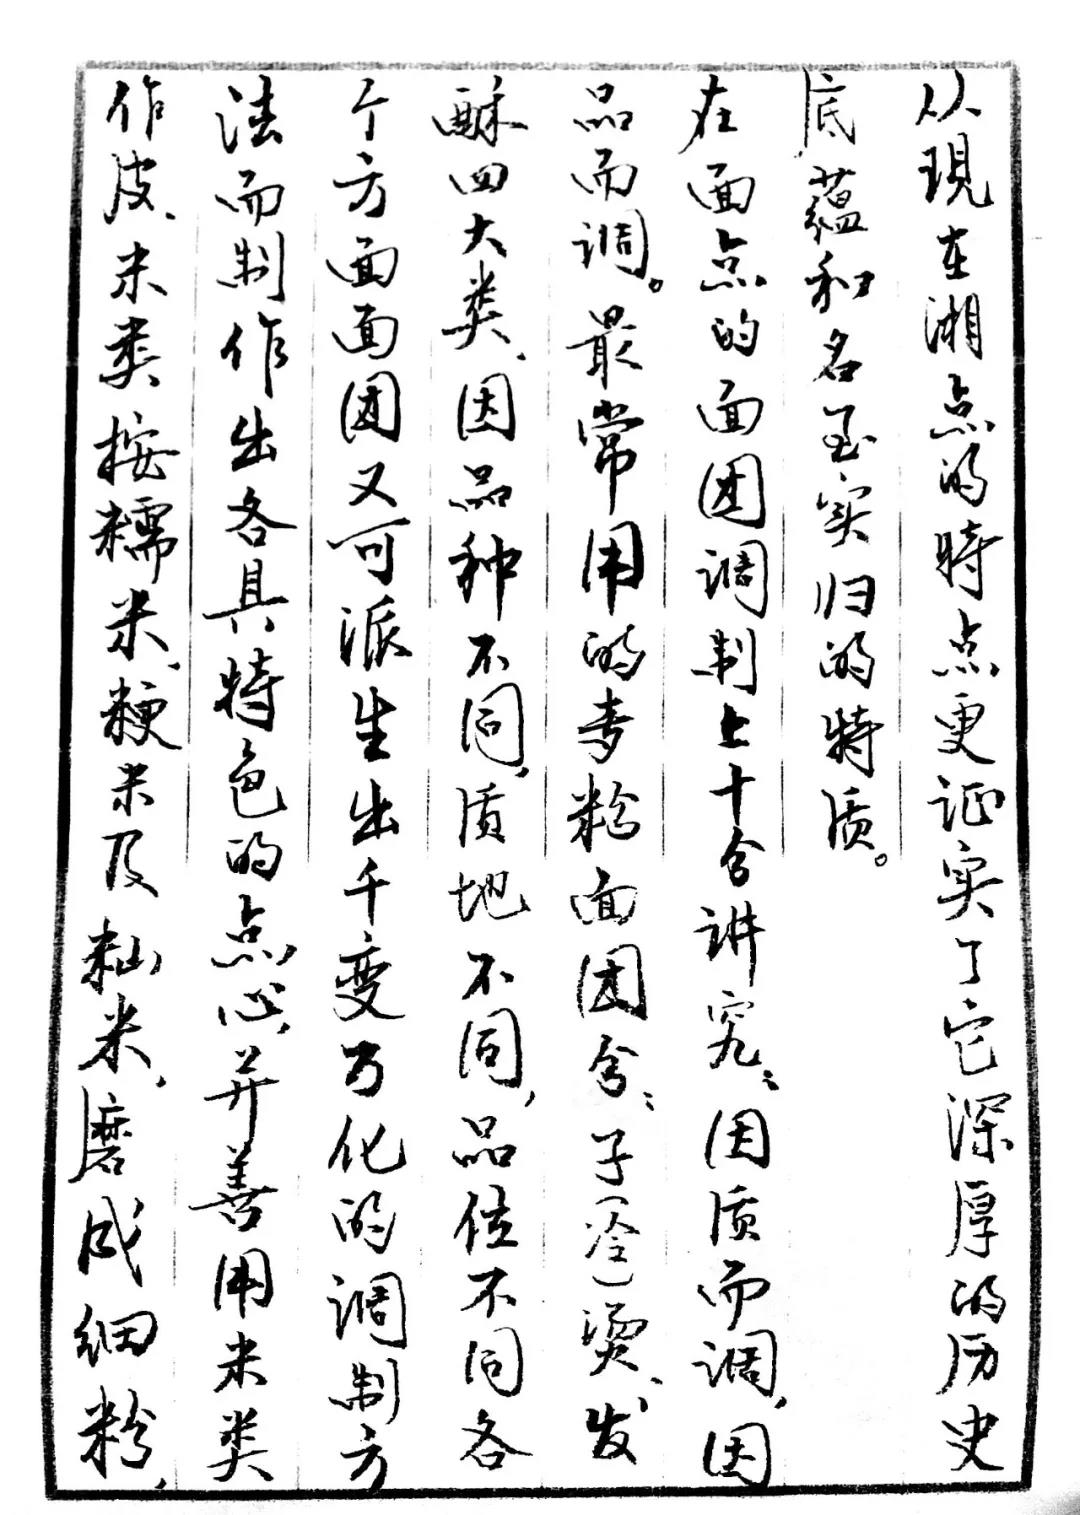 从現在湘点的時点更证实了它深厚的历史
底蕴和名至实归的特质。
在面点的面团调制上十分讲究：因质而调，因
品而调。最常用的麦粉面团分：子(冷)烫、发
酥四大类、因品种不同，质地不同，品位不同各
个方面面团又可派生出千变万化的调制方
法而制作出各具特色的点心，并善用米类
作皮、米类按糯米、粳米及籼米，磨成细粉，